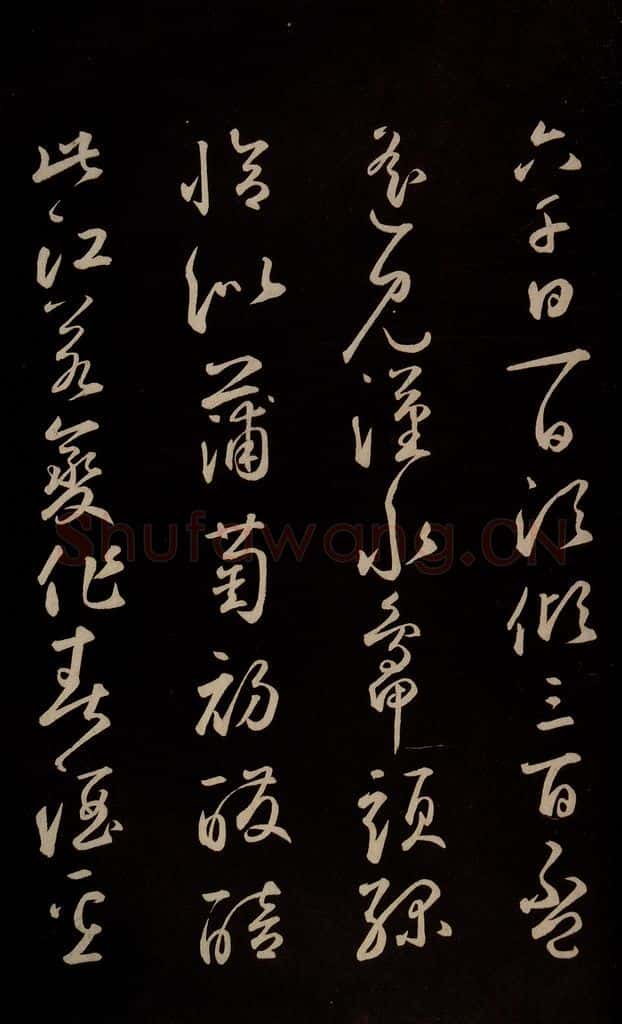 六千日一日須傾三百盃
遙見漢水鴨頭綠
恰似蒲萄初醱醅
此江若變作春酒壘
Shufawang.CN